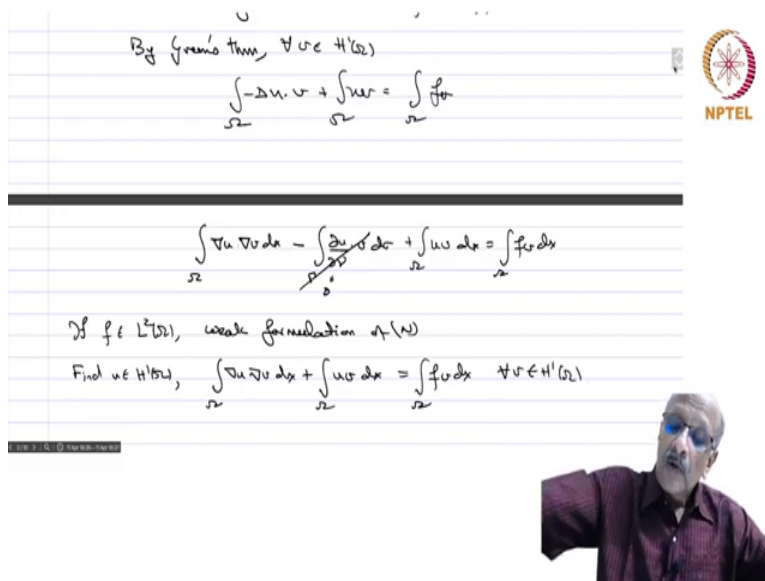 By Green's thm, ∀ v ∈ H¹(Ω)
∫_Ω -Δu · v + ∫_Ω uv = ∫_Ω fv
NPTEL
∫_Ω ∇u ∇v dx - ∫_Γ ∂u/∂ν v dσ + ∫_Ω uv dx = ∫_Ω fv dx
0
If f ∈ L²(Ω), weak formulation of (N)
Find u ∈ H¹(Ω), ∫_Ω ∇u ∇v dx + ∫_Ω uv dx = ∫_Ω fv dx ∀ v ∈ H¹(Ω)